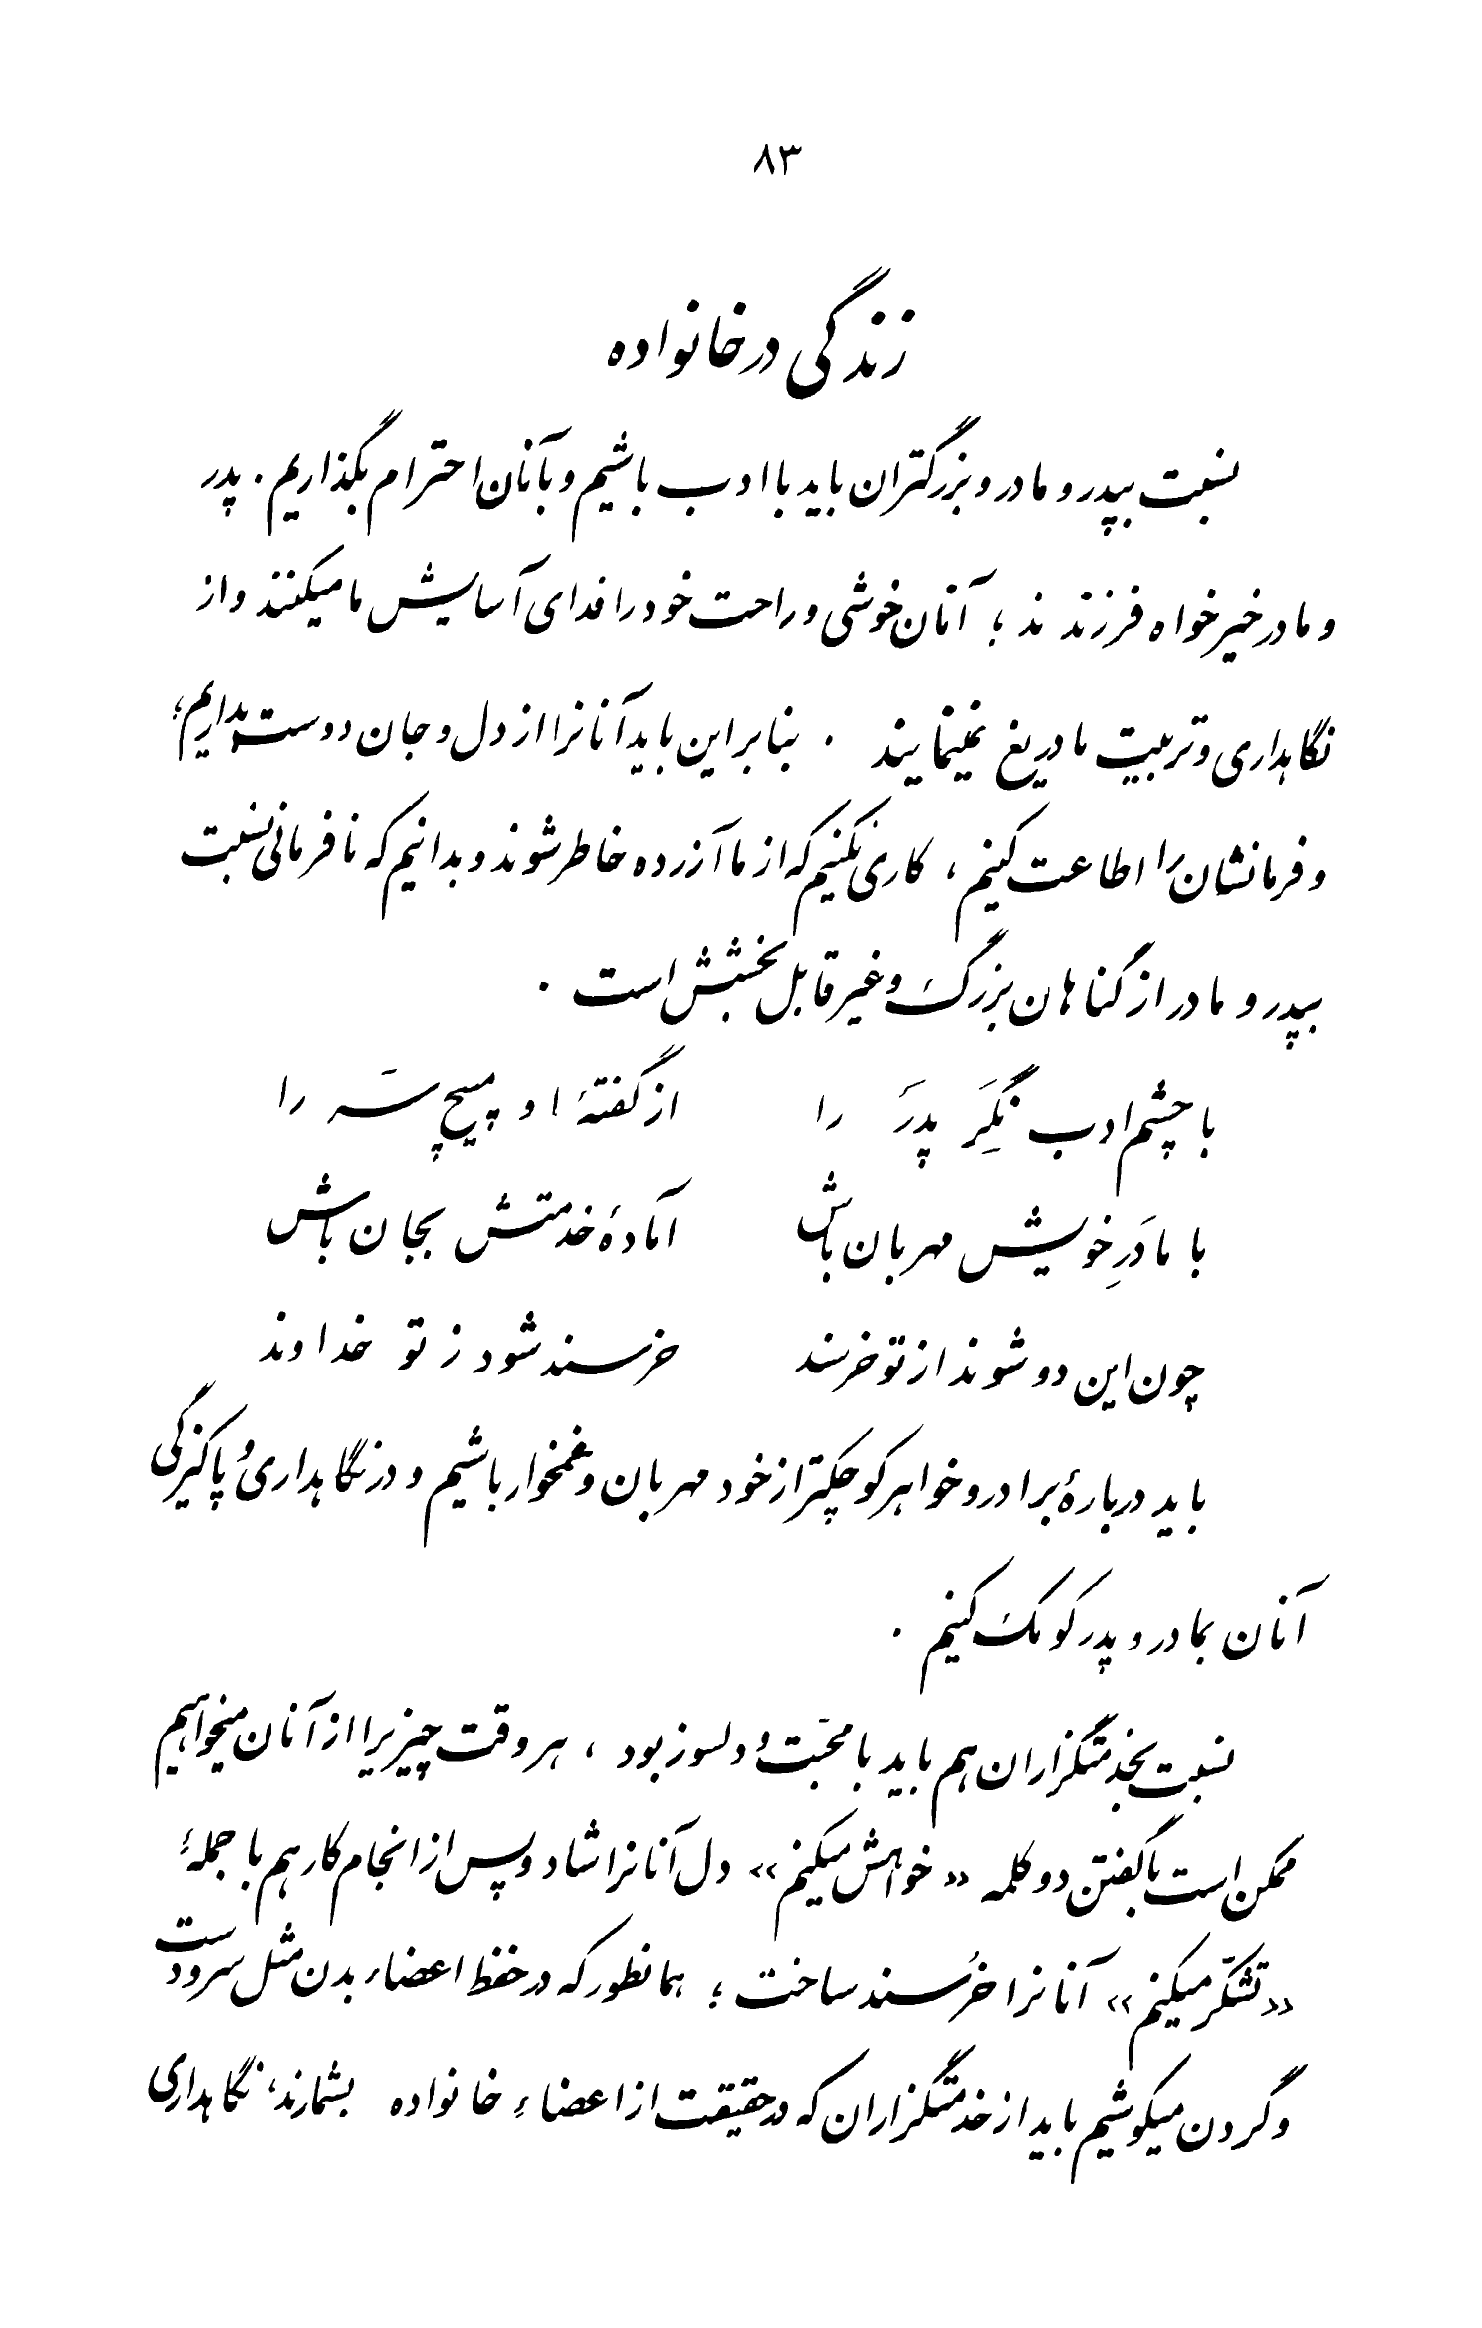 ۸۳
زندگی در خانواده
نسبت بپدر و مادر و بزرگتران باید با ادب باشیم و بآنان احترام بگذاریم. پدر
و مادر خیرخواه فرزندند ؛ آنان خوشی و راحت خود را فدای آسایش ما میکنند و از
نگاهداری و تربیت ما دریغ نمینمایند . بنابراین باید آنانرا از دل و جان دوست بداریم؛
و فرمانشان را اطاعت کنیم ، کاری نکنیم که از ما آزرده خاطر شوند و بدانیم که نافرمانی نسبت
بپدر و مادر از گناهان بزرگ و غیر قابل بخشش است .
با چشم ادب نِگَر پدَر را از گفتهٔ او مپیچ سَر را
با مادَرِ خویش مهربان باش آمادهٔ خدمتش بجان باش
چون این دو شوند از تو خرسند خرسند شود ز تو خداوند
باید دربارهٔ برادر و خواهر کوچکتر از خود مهربان و غمخوار باشیم و در نگاهداری و پاکیزگی
آنان بمادر و پدر کومک کنیم .
نسبت بخدمتگزاران هم باید با محبّت و دلسوز بود ، هر وقت چیزیرا از آنان میخواهیم
ممکن است با گفتن دو کلمه «خواهش میکنم» دل آنانرا شاد و پس از انجام کار هم با جملهٔ
«تشکّر میکنم» آنانرا خُرسند ساخت ؛ همانطور که در حفظ اعضاء بدن مثل سر و دست
و گردن میکوشیم باید از خدمتگزاران که در حقیقت از اعضاءِ خانواده بشمارند، نگاهداری